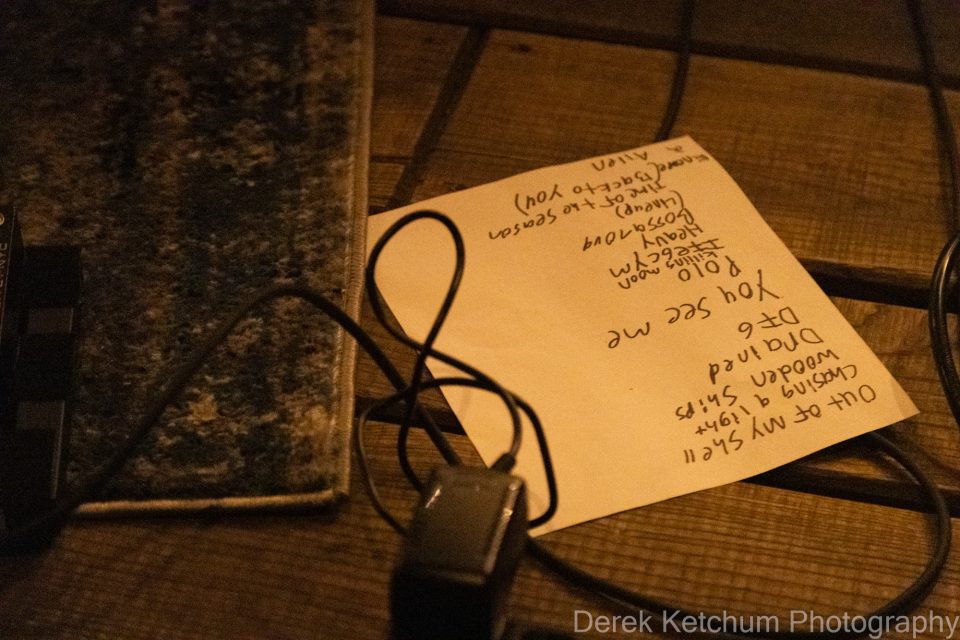 Out of my shell
chasing a light
wooden ships
Drained
DF6
You see me
Polo
killing moon
Heavy
Bossanova
(Lineup)
Time of the season
(Back to you)
Alien
Derek Ketchum Photography